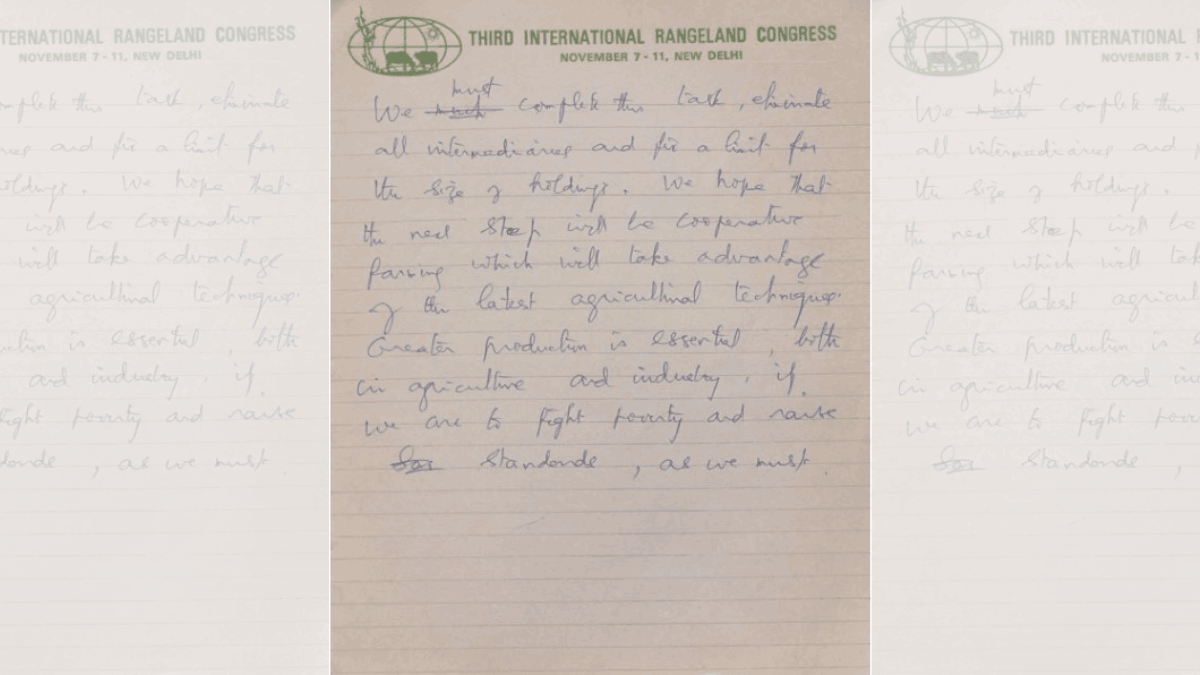 THIRD INTERNATIONAL RANGELAND CONGRESS
NOVEMBER 7 - 11, NEW DELHI
must
We complete this task, eliminate
all intermediaries and fix a limit for
the size of holdings. We hope that
the next step will be cooperative
farming which will take advantage
of the latest agricultural techniques.
Greater production is essential, both
in agriculture and industry, if
we are to fight poverty and raise
standards, as we must.